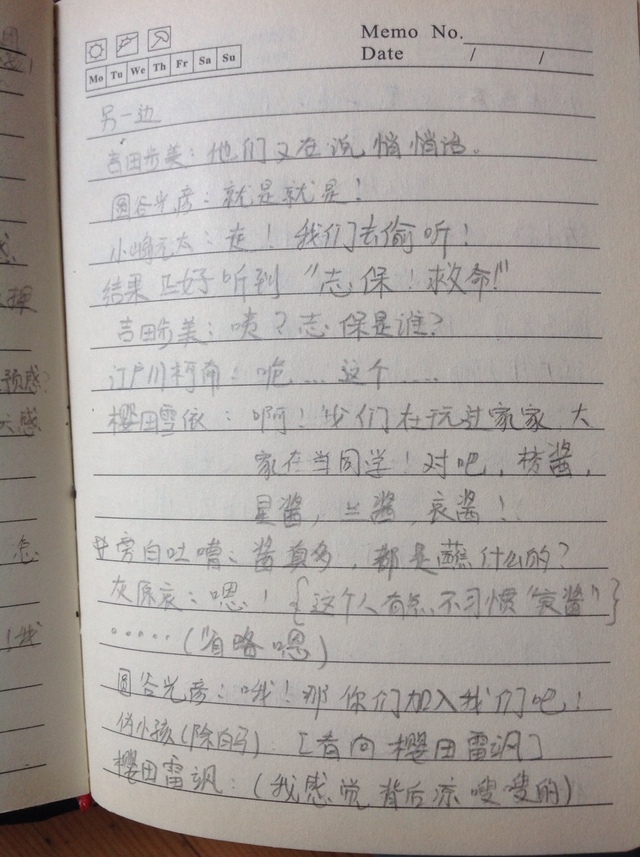 Memo No.
Date / /
Mo Tu We Th Fr Sa Su
另一边
吉田步美：他们又在说悄悄话。
圆谷光彦：就是就是！
小嶋元太：走！我们去偷听！
结果正好听到“志保！救命！”
吉田步美：咦？志保是谁？
江户川柯南：呃……这个……
樱田雪依：啊！我们在玩过家家，大
家在当同学！对吧，棱酱，
星酱，兰酱，哀酱！
旁白吐嘈：酱真多，都是蘸什么的？
灰原哀：嗯！{这个人有点不习惯“哀酱”}
……（省略嗯）
圆谷光彦：哦！那你们加入我们吧！
伪小孩（除白马）：[看向樱田雷飒]
樱田雷飒：（我感觉背后凉嗖嗖的）